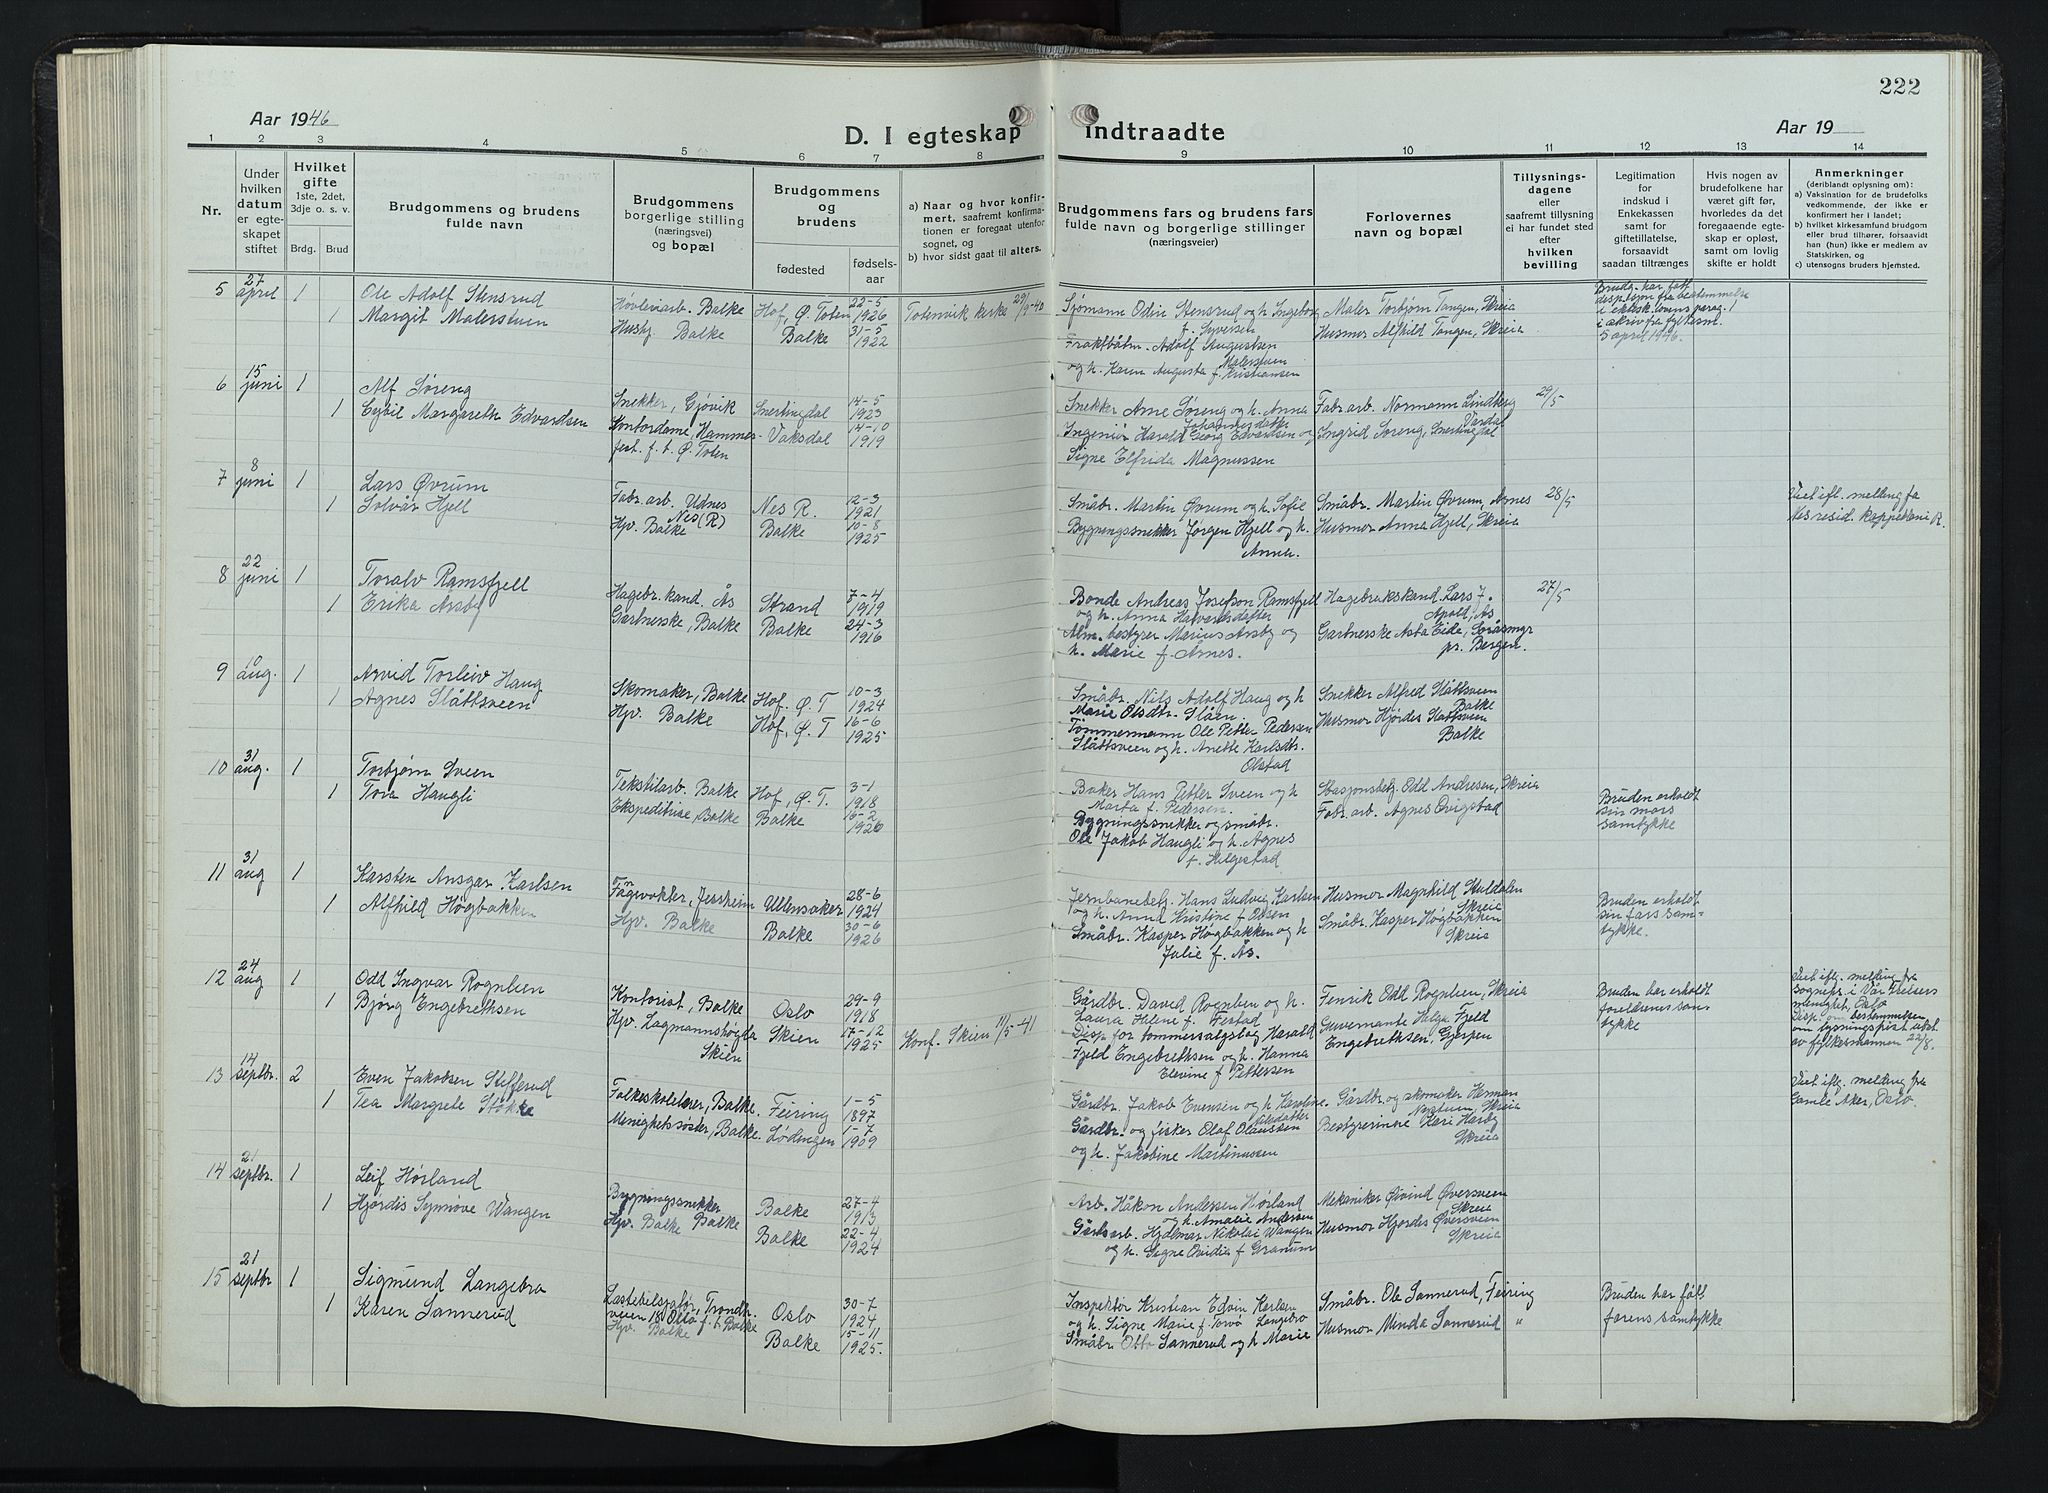 222
Aar 1946
D. I egteskap indtraadte
Aar 19
1 2 3 4 5 6 7 8 9 10 11 12 13 14
Nr.
Under hvilken datum er egteskapet stiftet
Hvilket gifte 1ste, 2det, 3dje o. s. v.
Brdg. Brud
Brudgommens og brudens fulde navn
Brudgommens borgerlige stilling (næringsvei) og bopæl
Brudgommens og brudens
fødested
fødsels-aar
a) Naar og hvor konfirmert, saafremt konfirmationen er foregaat utenfor sognet, og
b) hvor sidst gaat til alters.
Brudgommens fars og brudens fars fulde navn og borgerlige stillinger (næringsveier)
Forlovernes navn og bopæl
Tillysningsdagene eller saafremt tillysning ei har fundet sted efter hvilken bevilling
Legitimation for indskud i Enkekassen samt for giftetillatelse, forsaavidt saadan tiltrænges
Hvis nogen av brudefolkene har været gift før, hvorledes da det foregaaende egteskap er opløst, samt om lovlig skifte er holdt
Anmerkninger
(deriblandt oplysning om):
a) Vaksination for de brudefolks vedkommende, der ikke er konfirmert her i landet;
b) hvilket kirkesamfund brudgom eller brud tilhører, forsaavidt han (hun) ikke er medlem av Statskirken, og
c) utensogns bruders hjemsted.
5 27 april 1 Ole Adolf Stensrud
1 Margit Malerstuen
Høvleriarb. Balke Hof, Ø. Toten 22-5 1926
Husby Balke Balke 31-5 1922
Totenvik kirke 29/9-40
Sjømann Odin Stensrud og h. Ingeborg f. Syversen
Fraktbåtm. Adolf Augustsen Malerstuen
og h. Karen Augusta f. Kristiansen
Maler Torbjørn Tangen, Skreia
Husmor Alfhild Tangen, Skreia
Brudg. har fått
dispensjon fra bestemmelse
i ektesk. lovens parag. 1
i skriv fra fylkesm.
5 april 1946.
6 15 juni 1 Alf Søreng
1 Cybil Margareth Edvardsen
Snekker, Gjøvik Snertingdal 14-5 1923
Kontordame, Hammerfest. f. t. Ø. Toten Vaksdal 14-10 1919
Snekker Arne Søreng og h. Anna Johannesdatter
Ingeniør Harald Georg Edvardsen og
Signe Elfrida Magnussen
Fabr.arb. Normann Lindberg Vardal
Ingrid Søreng, Snertingdal
29/5
7 8 juni 1 Lars Øvrum
1 Solvår Hjell
Fabr.arb. Udnes Nes (R) Nes R. 12-3 1921
Hjv. Balke Balke 10-8 1925
Småbr. Martin Øvrum og h. Sofie
Bygningssnekker Jørgen Hjell og h.
Anna.
Småbr. Martin Øvrum, Årnes
Husmor Anna Hjell, Skreia
28/5
Viet ifl. melding fa
Nes resid. kappellani R.
8 22 juni 1 Toralv Ramsfjell
1 Erika Arsby
Hagebr.kand. Ås Strand 7-4 1919
Gartnerske, Balke Balke 24-3 1916
Bonde Andreas Josefson Ramsfjell
og h. Anna Halvardsdatter
Alm.bestyrer Marius Arsby og
h. Marie f. Årnes.
Hagebrukskand. Lars J. Apold, Ås
Gartnerske Asta Eide, Sråsmgr pr. Bergen.
27/5
9 10 aug. 1 Arvid Torleiv Haug
1 Agnes Slåttsveen
Skomaker, Balke Hof. Ø. T 10-3 1924
Hjv. Balke Hof, Ø. T 16-6 1925
Småbr. Nils Adolf Haug og h
Marie Olsdtr. Slåen.
Tømmermann Ole Petter Pedersen
Slåttsveen og h. Anette Karlsdtr.
Olstad
Snekker Alfred Slåttsveen Balke
Husmor Hjørdis Slåttsveen Balke
10 31 aug. 1 Torbjørn Sveen
1 Tora Haugli
Tekstilarb. Balke Hof, Ø. T. 3-1 1918
Ekspeditrise, Balke Balke 16-2 1926
Baker Hans Petter Sveen og h
Marta f. Pedersen.
Bygningssnekker og småbr.
Ole Jakob Haugli og h. Agnes
f. Helgestad
Stasjonsbetj. Odd Andresen, Skreia
Fabr.arb. Agnes Qvigstad
Bruden erholdt
sin mors
samtykke
11 31 aug 1 Karsten Ansgar Karlsen
1 Alfhild Høgbakken
Fangevokter, Jessheim Ullensaker 28-6 1924
Hjv. Balke Balke 30-6 1926
Jernbanebetj. Hans Ludvig Karlsen
og h. Anna Kristine f. Olsen
Småbr. Kasper Høgbakken og h
Julie f. Ås.
Husmor Magnhild Skuldalen Skreia
Småbr. Kasper Høgbakken Skreia
Bruden erholdt
sin fars sam-
tykke.
12 24 aug 1 Odd Ingvar Rognlien
1 Bjørg Engebrethsen
Kontorist, Balke Oslo 29-9 1918
Hjv. Lagmannshøgda Skien Skien 17-12 1925
Konf. Skien 11/5-41
Gårdbr. David Rognlien og h.
Laura Helene f. Festad
Disp. for tømmersalgslag Harald
Fjeld Engebrethsen og h. Hanna
Elevine f. Pettersen
Fenrik Odd Rognlien, Skreia
Guvernante Helga Fjeld
Engebrethsen, Gjerpen
Bruden har erholdt
foreldrenes sam-
tykke
Viet iflg. melding fra
sognepr. i Vår Frelsers
menighet, Oslo
Disp. om bestemmelsen
om lysningsfrist utst.
av fylkesmannen 22/8.
13 14 septbr. 2 Even Jakobsen Stefferud
1 Tea Margrete Stokke
Folkeskolelærer, Balke. Feiring 1-5 1897
Menighetssøster, Balke. Lødingen 1-7 1909
Gårdbr. Jakob Evensen og h. Karoline Olsdatter
Gårdbr. og fisker Olaf Olaussen
og h. Jakobine Martinussen
Gårdbr. og skomaker Herman Nystuen, Skreia
Bestyrerinne Kari Harby Skreia
Viet ifl. melding fra
Gamle Aker, Oslo.
14 21 septbr. 1 Leif Hørland
1 Hjørdis Synnøve Wangen
Bygningssnekker Balke 27-4 1913
Hjv. Balke Balke Balke 22-4 1924
Arb. Håkon Andersen Hørland
og h. Amalie Andersen
Gårdsarb. Hjalmar Nikolai Wangen
og h. Signe Ovidia f. Granum
Mekaniker Øivind Øversveen Skreia
Husmor Hjørdis Øversveen Skreia
15 21 septbr 1 Sigmund Langebro
1 Karen Sannerud
Lastebilsjåfør, Trondh.veien 180 Oslo f. t. Balke Oslo 30-7 1924
Hjv. Balke Balke 15-11 1925.
Inspektør Kristian Edvin Karlsen
og h. Signe Marie f. Torvø Langebro
Småbr. Otto Sannerud og h Marie
Småbr. Ole Sannerud, Feiring
Husmor Minda Sannerud "
Bruden har fått
farens samtykke